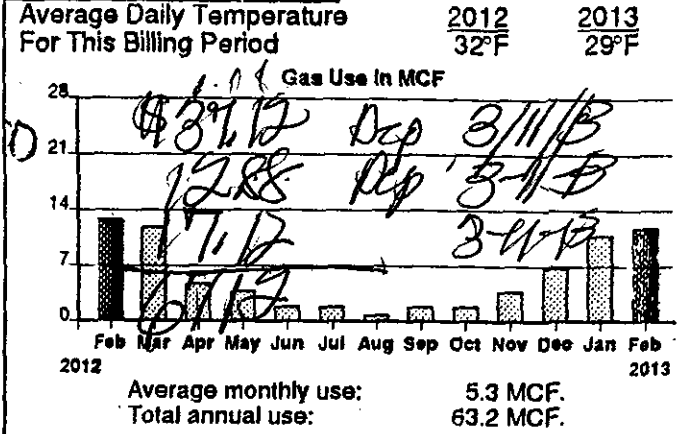 Average Daily Temperature 2012 2013
For This Billing Period 32°F 29°F
Gas Use In MCF
28
$37.12 Dep 3/11/13
21
12.88 Dep 3-11-13
14
17.12 3-11-13
7
67.12
0
Feb Mar Apr May Jun Jul Aug Sep Oct Nov Dec Jan Feb
2012 2013
Average monthly use: 5.3 MCF.
Total annual use: 63.2 MCF.